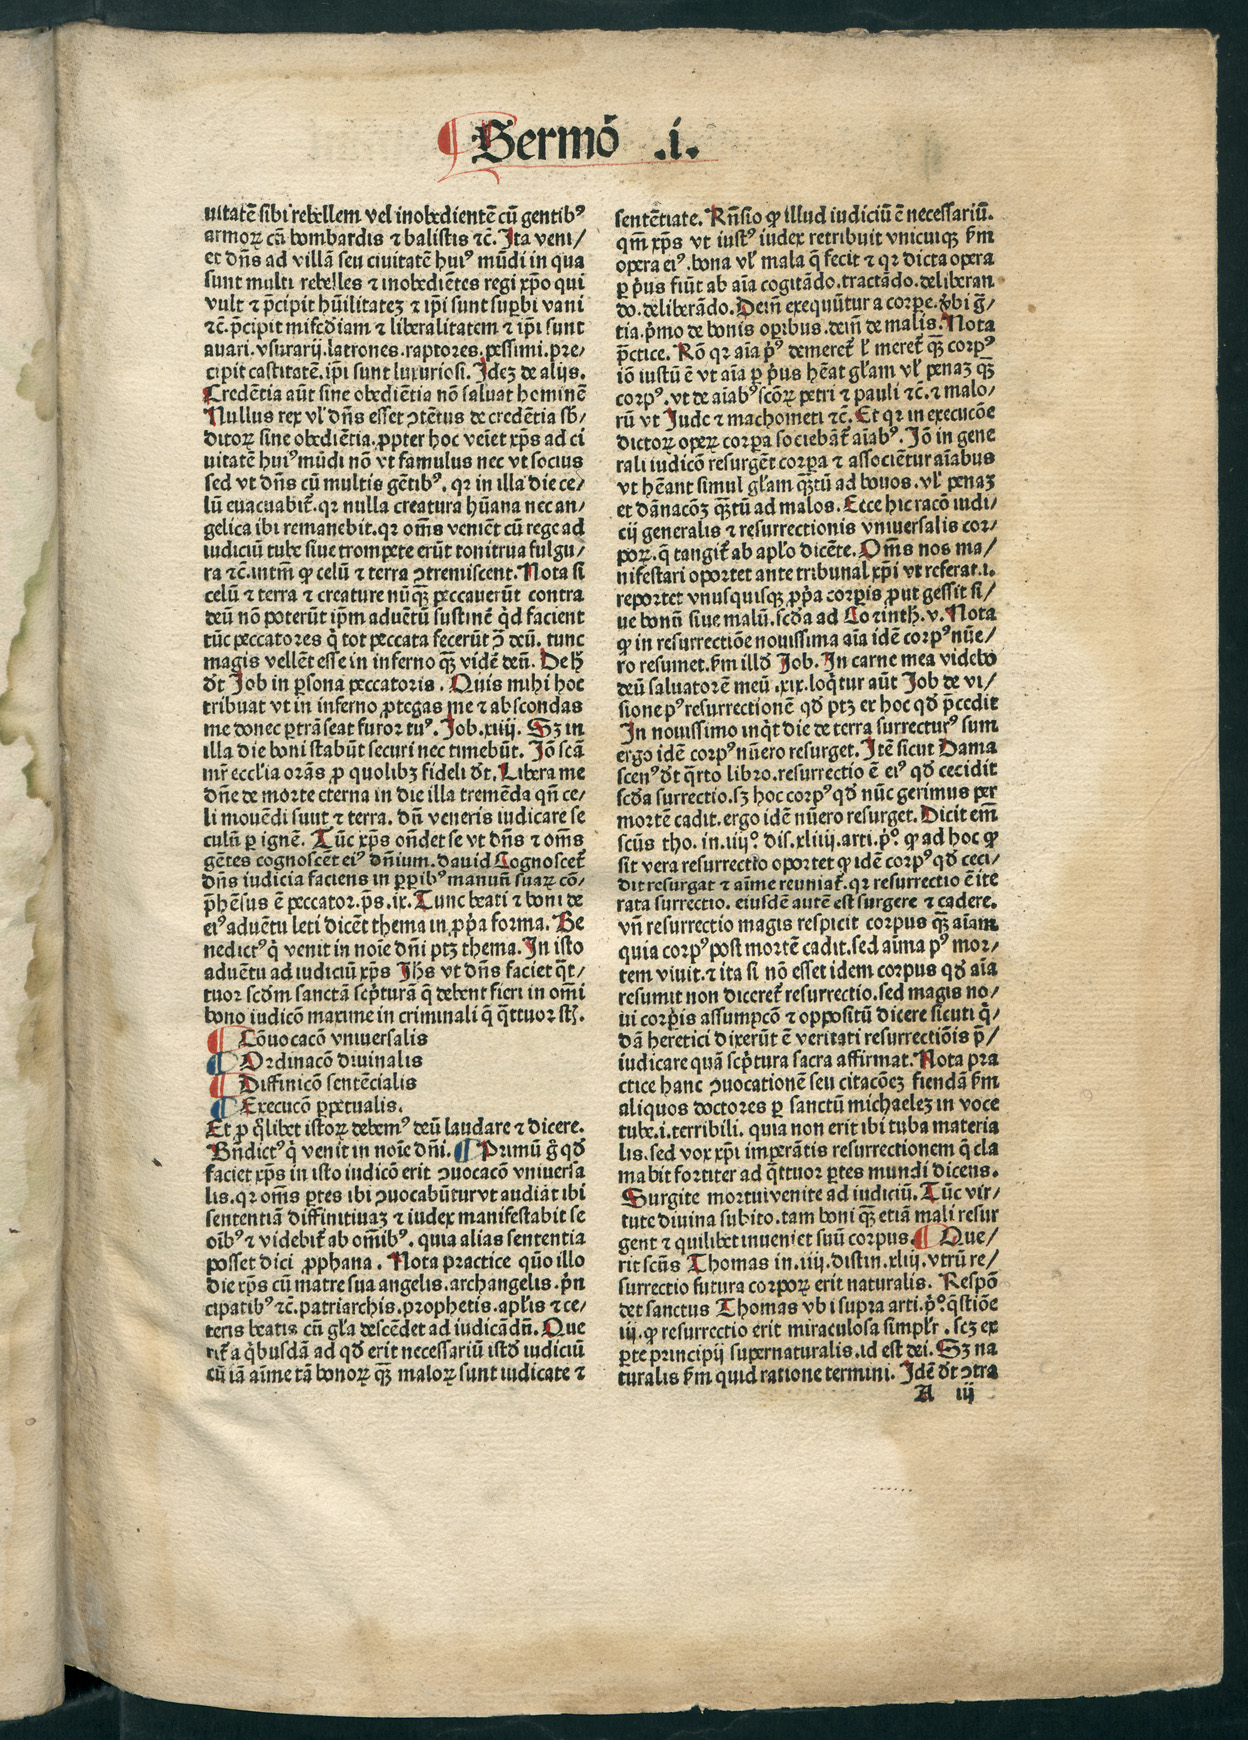 Sermō .i.
uitatē sibi rebellem vel inobedientē cū gentibꝰ
armoꝝ cū bombardis ⁊ balistis ⁊c̄. Ita veni/
et dn̄s ad villā seu ciuitatē huiꝰ mūdi in qua
sunt multi rebelles ⁊ inobediētes regi xp̄o qui
vult ⁊ p̄cipit hūilitateꝫ ⁊ ip̄i sunt suꝑbi vani
⁊c̄. p̄cipit miscd̄iam ⁊ liberalitatem ⁊ ip̄i sunt
auari. vsurarij. latrones. raptores. pessimi. pre/
cipit castitatē. ip̄i sunt luxuriosi. Ideꝫ de alijs.
Credētia aūt sine obediētia nō saluat hominē
Nullus rex vl̓ dn̄s esset ꝯtētus de credētia sb̄/
ditoꝝ sine obediētia. ꝓpter hoc veīet xp̄s ad ci
uitatē huiꝰ mūdi nō vt famulus nec vt socius
sed vt dn̄s cū multis gētibꝰ. qꝛ in illa die ce/
lū euacuabit̄. qꝛ nulla creatura hūana nec an/
gelica ibi remanebit. qꝛ om̄s veniēt cū rege ad
iudiciū tube siue trompete erūt tonitrua fulgu/
ra ⁊c̄. intm̄ ꝙ celū ⁊ terra ꝯtremiscent. Nota si
celū ⁊ terra ⁊ creature nūꝗꝫ peccauerūt contra
deū nō poterūt ip̄m aduētū sustinē q̇d facient
tūc peccatores q̇ tot peccata fecerūt ꝯ̄ deū. tunc
magis vellēt esse in inferno ꝗꝫ vidē deū. De h̄
dt̄ Job in ꝑsona peccatoris. Quis mihi hoc
tribuat vt in inferno ꝓtegas me ⁊ abscondas
me donec ꝑtrāseat furor tuꝰ. Job. xiiij. Sꝫ in
illa die boni stabūt securi nec timebūt. Iō scā
mr̄ eccl̓ia orās ꝓ quolibꝫ fideli dt̄. Libera me
dn̄e de morte eterna in die illa tremēda qn̄ ce/
li mouēdi sunt ⁊ terra. dū veneris iudicare se
culū ꝑ ignē. Tūc xp̄s on̄det se vt dn̄s ⁊ om̄s
gētes cognoscēt eiꝰ dn̄ium. dauid Cognoscet̄
dn̄s iudicia faciens in ꝑꝑibꝰ manuū suaꝝ cō/
p̄hēsus ē peccator. ps̄. ix. Tunc beati ⁊ boni de
eiꝰ aduētu leti dicēt thema in ꝓp̄a forma. Be
nedictꝰ q̇ venit in noīe dn̄i ptꝫ thema. In isto
aduētu ad iudiciū xp̄s Ihs vt dn̄s faciet q̄t/
tuor scd̄m sanctā scp̄turā q̄ debent fieri in om̄i
bono iudicō maxime in criminali q̄ q̄ttuor st̄.
¶ Cōuocacō vniuersalis
¶ Ordinacō diuinalis
¶ Diffinicō sentēcialis
¶ Execucō ꝑpetualis.
Et ꝓ q̇libet istoꝝ debemꝰ deū laudare ⁊ dicere.
Bn̄dictꝰ q̇ venit in noīe dn̄i. ¶ Primū g̊ qd̄
faciet xp̄s in isto iudicō erit ꝯuocacō vniuersa
lis. qꝛ om̄s ꝑtes ibi ꝯuocabūtur vt audiāt ibi
sententiā diffinitiuaꝫ ⁊ iudex manifestabit se
oībꝰ ⁊ videbit̄ ab om̄ibꝰ. quia alias sententia
posset dici ꝓphana. Nota practice quō illo
die xp̄s cū matre sua angelis. archangelis. p̄n
cipatibꝰ ⁊c̄. patriarchis. prophetis. apl̓is ⁊ ce/
teris beatis cū gl̓a descēdet ad iudicādū. Que
rit̄ a q̇busdā ad qd̄ erit necessariū istd̄ iudiciū
cū iā aīme tā bonoꝝ ꝗꝫ maloꝝ sunt iudicate ⁊
sentētiate. Rn̄sio ꝙ illud iudiciū ē necessariū.
qm̄ xp̄s vt iustꝰ iudex retribuit vnicuiqꝫ ẜm
opera eiꝰ. bona vl̓ mala q̄ fecit ⁊ qꝛ dicta opera
ꝑ pⁱus fiūt ab aīa cogitādo. tractādo. deliberan
do. deliberādo. Dein̄ exequūtur a corꝑe. v̓bi ḡ/
tia. pⁱmo de bonis oꝑibus. dein̄ de malis. Nota
p̄ctice. Rō qꝛ aīa pⁱꝰ demeret̄ l̓ meret̄ ꝗꝫ corpꝰ
iō iustū ē vt aīa ꝑ pⁱus hēat gl̓am vl̓ penaꝫ ꝗꝫ
corpꝰ. vt de aīabꝰ scōꝝ petri ⁊ pauli ⁊c̄. ⁊ malo/
rū vt Jude ⁊ machometi ⁊c̄. Et qꝛ in execucōe
dictoꝝ opeꝝ corꝑa sociebāt̄ aīabꝰ. Iō in gene
rali iudicō resurgēt corꝑa ⁊ associētur aīabus
vt hēant simul gl̓am ꝗꝫtū ad bonos. vl̓ penaꝫ
et dānacōꝫ ꝗꝫtū ad malos. Ecce hic racō iudi/
cij generalis ⁊ resurrectionis vniuersalis cor/
poꝝ. q̄ tangit̄ ab apl̓o dicēte. Om̄s nos ma/
nifestari oportet ante tribunal xp̄i vt referat. i.
reportet vnusquisqꝫ ꝓp̄a corꝑis ꝓut gessit si/
ue bonū siue malū. scd̄a ad Corinth. v. Nota
ꝙ in resurrectiōe nouissima aīa idē corpꝰ nūe/
ro resumet. ẜm illd̄ Job. In carne mea videbo
deū saluatorē meū. xix. loq̇tur aūt Job de vi/
sione pꝰ resurrectionē qd̄ ptꝫ ex hoc qd̄ p̄cedit
In nouissimo inq̇t die de terra surrecturꝰ sum
ergo idē corpꝰ nūero resurget. Itē sicut Dama
scenꝰ dt̄ q̄rto libro. resurrectio ē eiꝰ qd̄ cecidit
scd̄a surrectio. sꝫ hoc corpꝰ qd̄ nūc gerimus per
mortē cadit. ergo idē nūero resurget. Dicit em̄
scūs tho. in. iiij°. dis. xliiij. arti. pⁱ°. ꝙ ad hoc ꝙ
sit vera resurrectio oportet ꝙ idē corpꝰ qd̄ ceci/
dit resurgat ⁊ aīme reuniat̄. qꝛ resurrectio ē ite
rata surrectio. eiusdē autē est surgere ⁊ cadere.
vn̄ resurrectio magis respicit corpus ꝗꝫ aīam
quia corpꝰ post mortē cadit. sed aīma pꝰ mor/
tem viuit. ⁊ ita si nō esset idem corpus qd̄ aīa
resumit non diceret̄ resurrectio. sed magis no/
ui corꝑis assumpcō ⁊ oppositū dicere sicuti q̇/
dā heretici dixerūt ē veritati resurrectiōis p̄/
iudicare quā scp̄tura sacra affirmat. Nota pra
ctice hanc ꝯuocationē seu citacōeꝫ fiendā ẜm
aliquos doctores ꝑ sanctū michaeleꝫ in voce
tube. i. terribili. quia non erit ibi tuba materia
lis. sed vox xp̄i imperātis resurrectionem q̄ cla
mabit fortiter ad q̄ttuor ꝑtes mundi dicens.
Surgite mortui venite ad iudiciū. Tūc vir/
tute diuina subito. tam boni ꝗꝫ etiā mali resur
gent ⁊ quilibet inueniet suū corpus. ¶ Que/
rit scūs Thomas in. iiij. distin. xliij. vtrū re/
surrectio futura corpoꝝ erit naturalis. Respō
det sanctus Thomas vbi supra arti. pⁱ°. q̄stiōe
iij. ꝙ resurrectio erit miraculosa simpl̓r. scꝫ ex
ꝑte principij supernaturalis. id est dei. Sꝫ na
turalis ẜm quid ratione termini. Idē dt̄ ꝯtra
A iij